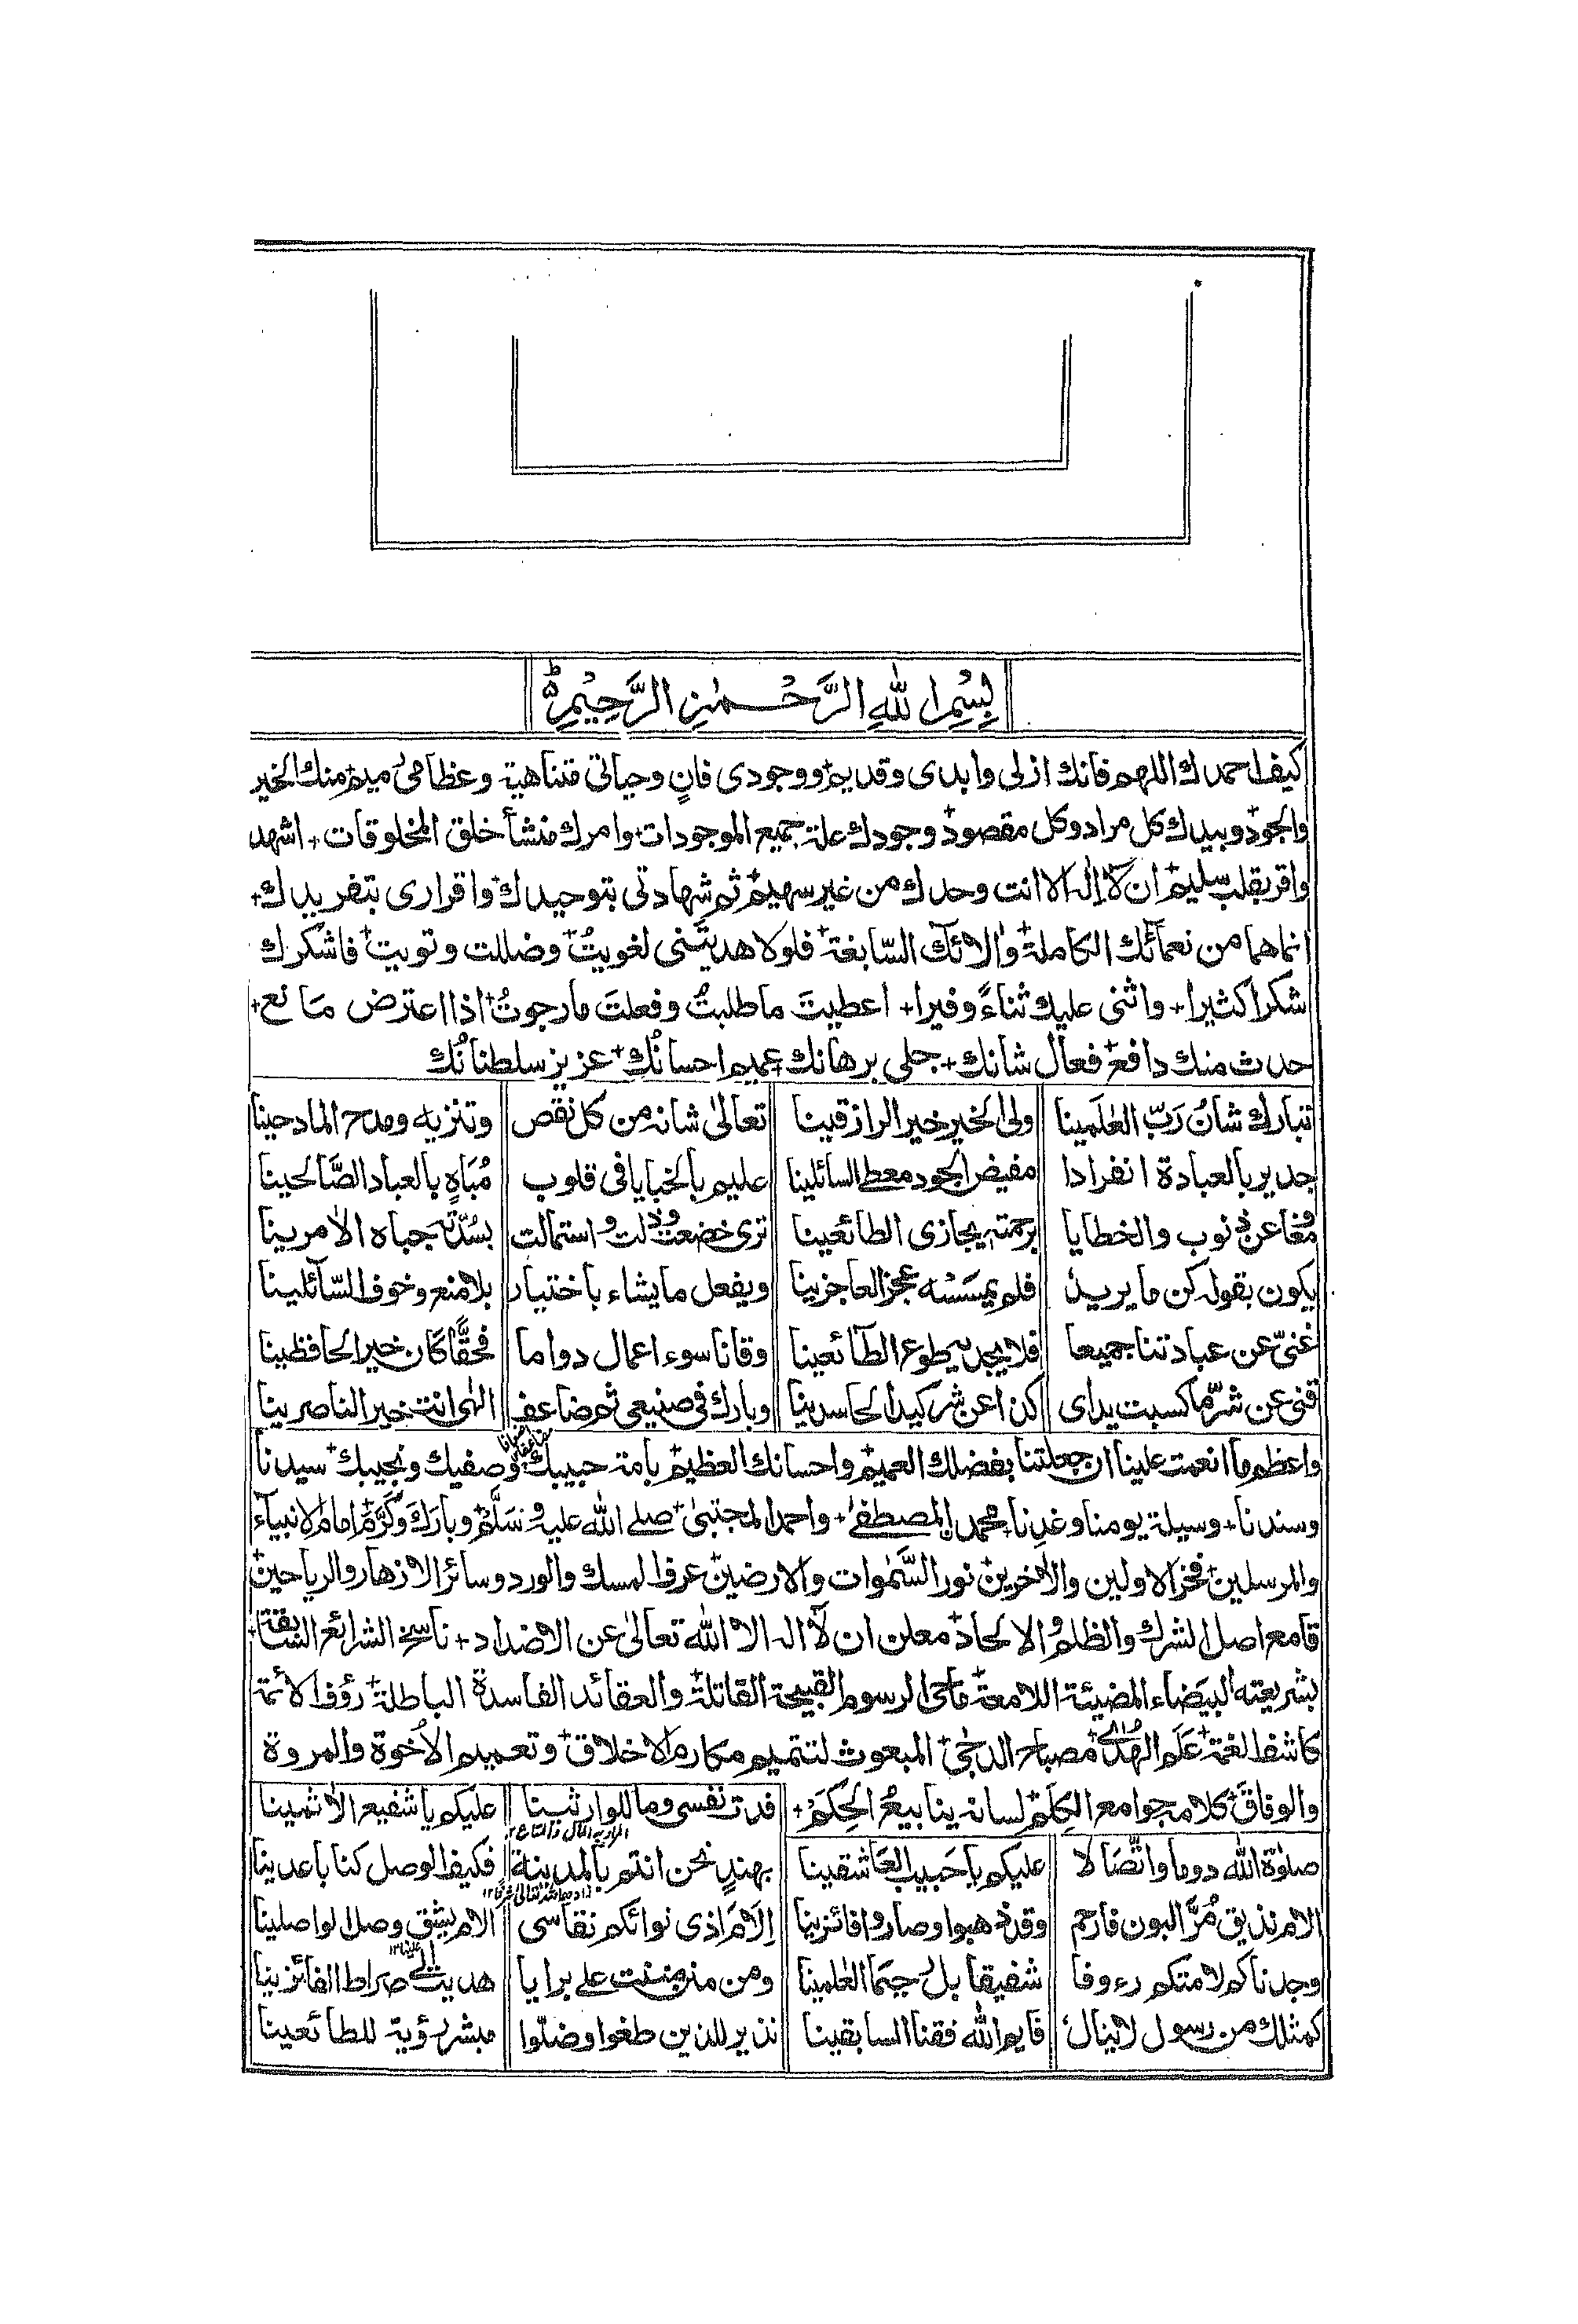 بِسْمِ اللهِ الرَّحْمٰنِ الرَّحِيْمِ
كيف احمدك اللهم فانك ازلى وابدى وقديم + ووجودى فانٍ وحياتى متناهية وعظامى رميم + منك الخير
والجود + وبيدك كل مراد وكل مقصود + وجودك علة جميع الموجودات + وامرك منشأ خلق المخلوقات + اشهد
واقر بقلب سليم + ان لا اله الا انت وحدك من غير سهيم + ثم شهادتى بتوحيدك + واقرارى بتفريدك +
انما هما من نعمائك الكاملة + والائك السّابغة + فلولا هديتَنى لغويتُ + وضللت وتويت + فاشكرك
شكرا كثيرا + واثنى عليك ثناءً وفيرا + اعطيتَ ما طلبتُ وفعلتَ ما رجوتُ + اذا اعترض مَانع +
حدث منك دافع + فعال شانك + جلى برهانك + عميم احسانُك + عزيز سلطنانُك
تبارك شانُ رَبّ العٰلَمينا ولى الخير خير الرازقينا تعالىٰ شانه من كل نقص وتنزيه ومدح المادحينا
جدير بالعبادة انفرادا مفيض الجود معطى السائلينا عليم بالخبايا فى قلوب مُبَاهٍ بالعباد الصَّالحينا
عن ذنوب والخطايا برحمته يجازى الطائعينا ترى خضعت وذلت واستمالت بسُدّته جباه الاٰمرينا
يكون بقوله كن ما يريد فلم يمسَسْه عجز العاجزينا ويفعل ما يشاء باختيار بلا منع وخوف السّآئلينا
غنىّ عن عبادتنا جميعا فلا يجديه طوع الطّآئعينا وقانا سوء اعمال دواما فحقًّا كان خير الحافظينا
قنى عن شرّ ما كسبت يداى كذا عن شر كيد الحاسدينا وبارك فى صنيعى ثم ضاعف الٰهى انت خير الناصرينا
واعظم ما انعمت علينا ان جعلتنا بفضلك العميم + واحسانك العظيم + بامة حبيبك وصفيك ونجيبك + سيدنا
وسندنا + وسيلة يومنا وغدنا + محمد المصطفىٰ + واحمد المجتبىٰ + صلى الله عليه وسَلَّم + وبارَك وكَرَّم + امام الانبيآء
والمرسلين + فخر الاولين والاٰخرين + نور السَّمٰوات والارضين + عرف المسك والورد وسائر الازهار والرياحين +
قامع اصل الشرك والظلم والالحاد + معلن ان لآ اله الا الله تعالىٰ عن الاضداد + ناسخ الشرائع السابقة +
بشريعته البيضاء المضيئة اللامعة + ماحى الرسوم القبيحة القاتلة + والعقائد الفاسدة الباطلة + رؤف الامة
كاشف الغمة + عَلَم الهُدىٰ + مصباح الدجىٰ + المبعوث لتتميم مكارم الاخلاق + وتعميم الاُخوة والمروة
والوفاق + كلامه جوامع الكَلِم + لسانه ينابيعُ الحِكَم + فدت نفسى وما للوارثينا عليكم يا شفيع الاٰثمينا
المراد به المال والمتاع ١٢
صلوٰة الله دوما واتّصَالا عليكم يا حَبيب العَاشقينا بهندٍ نحن انتم بالمدينة فكيف الوصل كنا باعدينا
زادها الله تعالى شرفا ١٢
الام نذيق مُرَّ البون فارحم وقد ذهبوا وصاروا فائزينا اِلامَ اذى نوائكم نقاسى الام يشق وصل الواصلينا
وجدناكم لامتكم رءوفا شفيقا بل رحيمَا العٰلمينا ومن مننت على برايا هديت الى صراط الفائزينا
كمثلك من رسول لا ينال فايم الله فقنا السابقينا نذير للذين طغوا وضلّوا مبشر رؤية للطائعينا